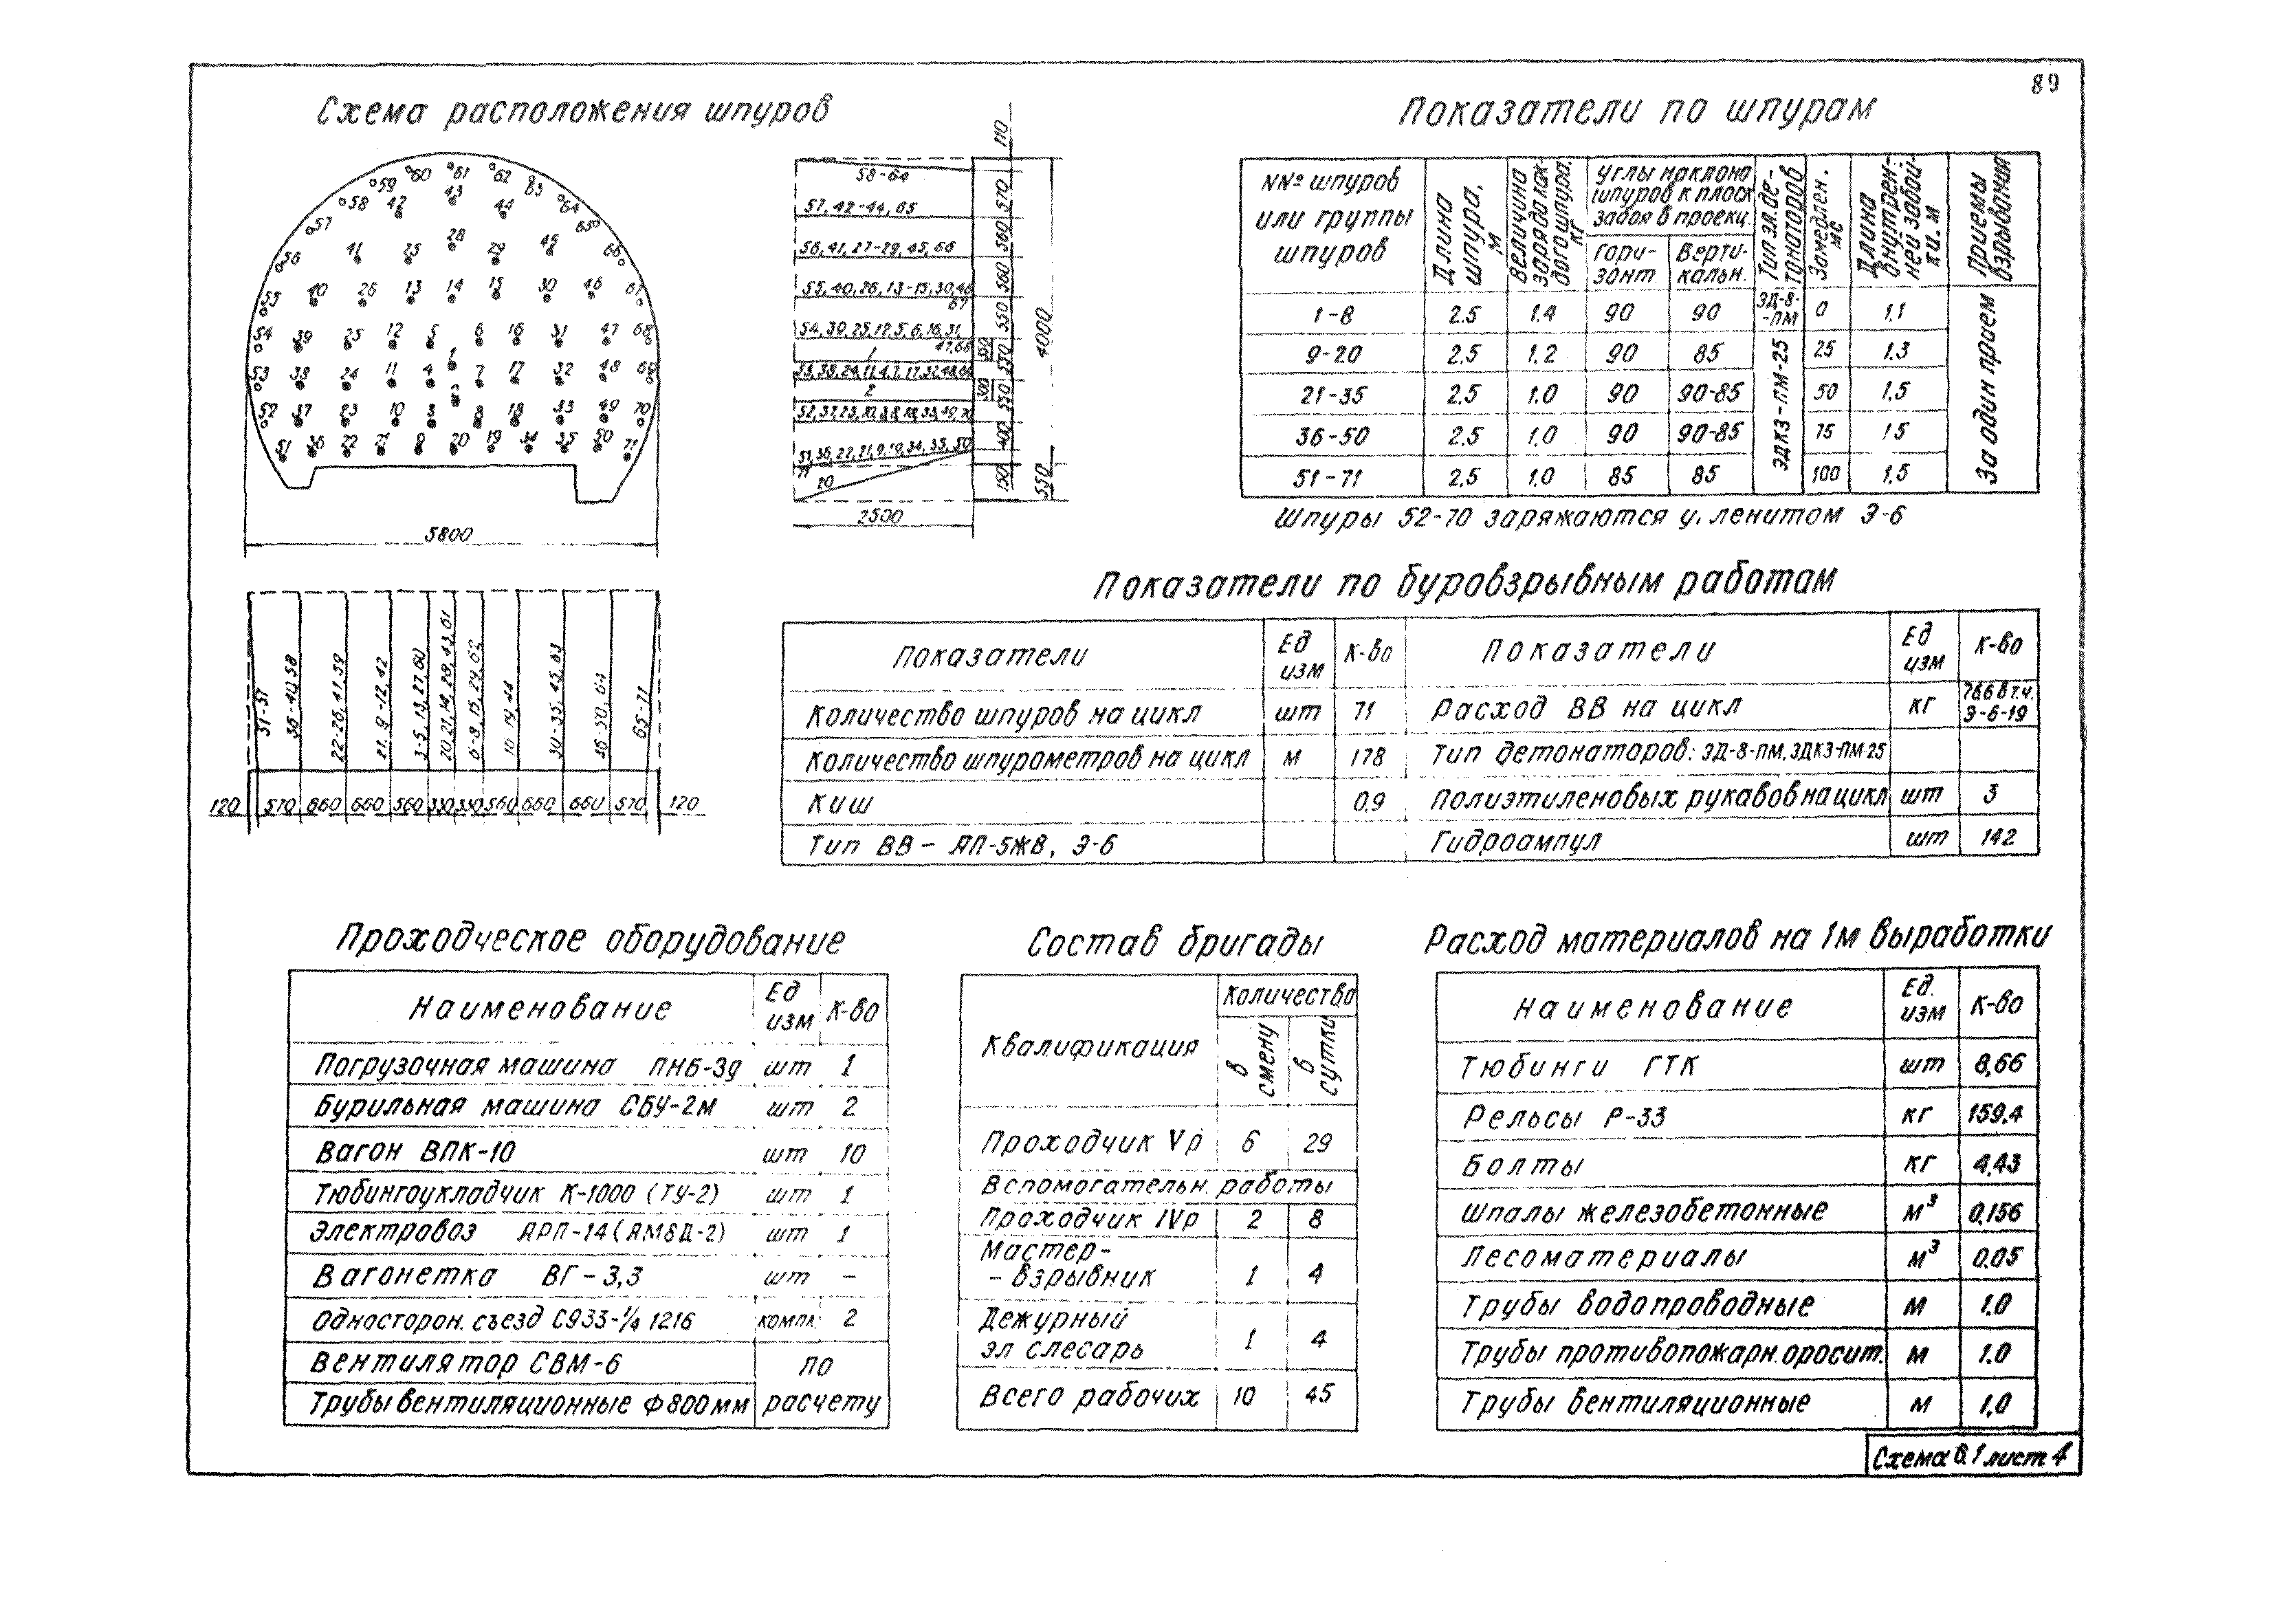 89
Схема расположения шпуров
60 61 62 63
59 43
58 42 44 64
57 65
28
56 41 29 45 66
55 40 26 13 14 15 30 46 67
54 39 25 12 5 6 16 31 47 68
1
53 38 24 11 4 7 17 32 48 69
2
52 37 23 10 3 8 18 33 49 70
51 36 22 21 9 20 19 34 35 50 71
5800
58-64
57, 42-44, 65
56, 41, 27-29, 45, 66
55, 40, 26, 13-15, 30, 46
67
54, 39, 25, 12, 5, 6, 16, 31,
47, 68
1
53, 38, 24, 11, 4, 7, 17, 32, 48, 69
2
52, 37, 23, 10, 3, 8, 18, 33, 49, 70
51, 36, 22, 21, 9, 19, 34, 35, 50
71
20
2500
110
570
560
560
550
550
400
150
300
4000
550
51-57
36-40, 58
22-26, 41, 59
21, 9-12, 42
3-5, 13, 27, 60
20, 21, 14, 28, 43, 61
6-8, 15, 29, 62
16-19, 44
30-35, 45, 63
46-50, 64
65-71
120 570 660 660 560 330 330 560 660 660 570 120
Показатели по шпурам
NNº шпуров
или группы
шпуров
Длина
шпура,
м
Величина
заряда каж-
дого шпура.
кг
Углы наклона
шпуров к плоск
забоя в проекц.
гори-
зонт
Верти-
кальн.
Тип эл.де-
тонаторов
Замедлен.
мс
Длина
внутрен-
ней забой-
ки. м
Приемы
взрывания
1-8 2.5 1.4 90 90 ЭД-8-
-ПМ 0 1.1
9-20 2.5 1.2 90 85 25 1.3
21-35 2.5 1.0 90 90-85 50 1.5
36-50 2.5 1.0 90 90-85 75 15
51-71 2.5 1.0 85 85 100 1.5
ЭДКЗ-ПМ-25
За один прием
Шпуры 52-70 заряжаются у. ленитом Э-6
Показатели по буровзрывным работам
Показатели Ед
изм К-во Показатели Ед
изм К-во
Количество шпуров на цикл шт 71 Расход ВВ на цикл кг 76.6 в т.ч.
Э-6-19
Количество шпурометров на цикл м 178 Тип детонаторов: ЭД-8-ПМ, ЭДКЗ-ПМ-25
КИШ 0.9 Полиэтиленовых рукавов на цикл шт 3
Тип ВВ - АП-5ЖВ, Э-6 Гидроампул шт 142
Проходческое оборудование
Наименование Ед
изм К-во
Погрузочная машина ПНБ-3д шт 1
Бурильная машина СБУ-2м шт 2
Вагон ВПК-10 шт 10
Тюбингоукладчик К-1000 (ТУ-2) шт 1
Электровоз АРП-14 (АМ8Д-2) шт 1
Вагонетка ВГ-3,3 шт -
Односторон. съезд С933-1/4 1216 компл. 2
Вентилятор СВМ-6 по
Трубы вентиляционные Ф 800мм расчету
Состав бригады
Квалификация Количество
в
смену
в
сутки
Проходчик Vр 6 29
Вспомогательн. работы
Проходчик IVр 2 8
Мастер-
- взрывник 1 4
Дежурный
эл слесарь 1 4
Всего рабочих 10 45
Расход материалов на 1м выработки
Наименование Ед.
изм К-во
Тюбинги ГТК шт 8,66
Рельсы Р-33 кг 159,4
Болты кг 4,43
Шпалы железобетонные м³ 0,156
Лесоматериалы м³ 0.05
Трубы водопроводные м 1.0
Трубы противопожарн. оросит. м 1.0
Трубы вентиляционные м 1,0
Схема 6.1 лист 4